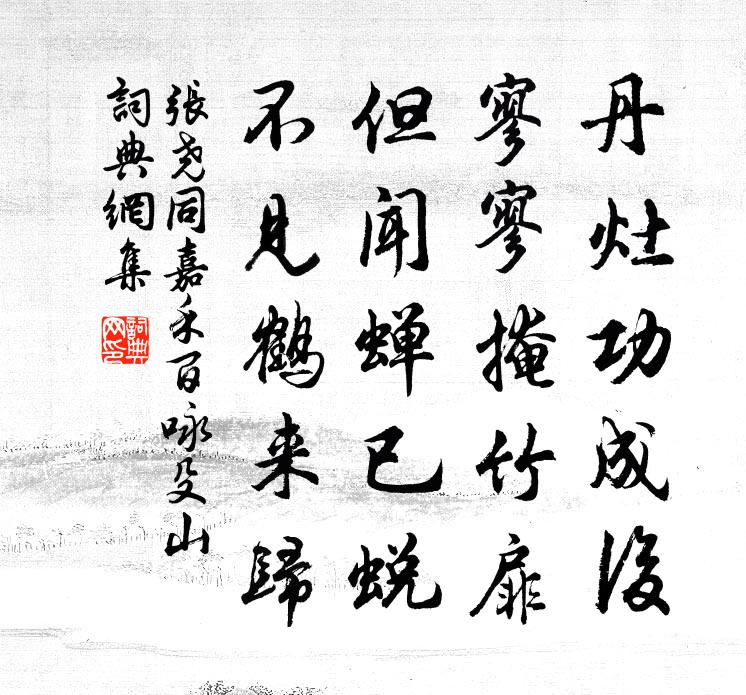 丹灶功成後
寥寥掩竹扉
但闻蝉已蜕
不見鹤来歸
張尧同嘉禾百咏殳山
詞典網集
詞典网印